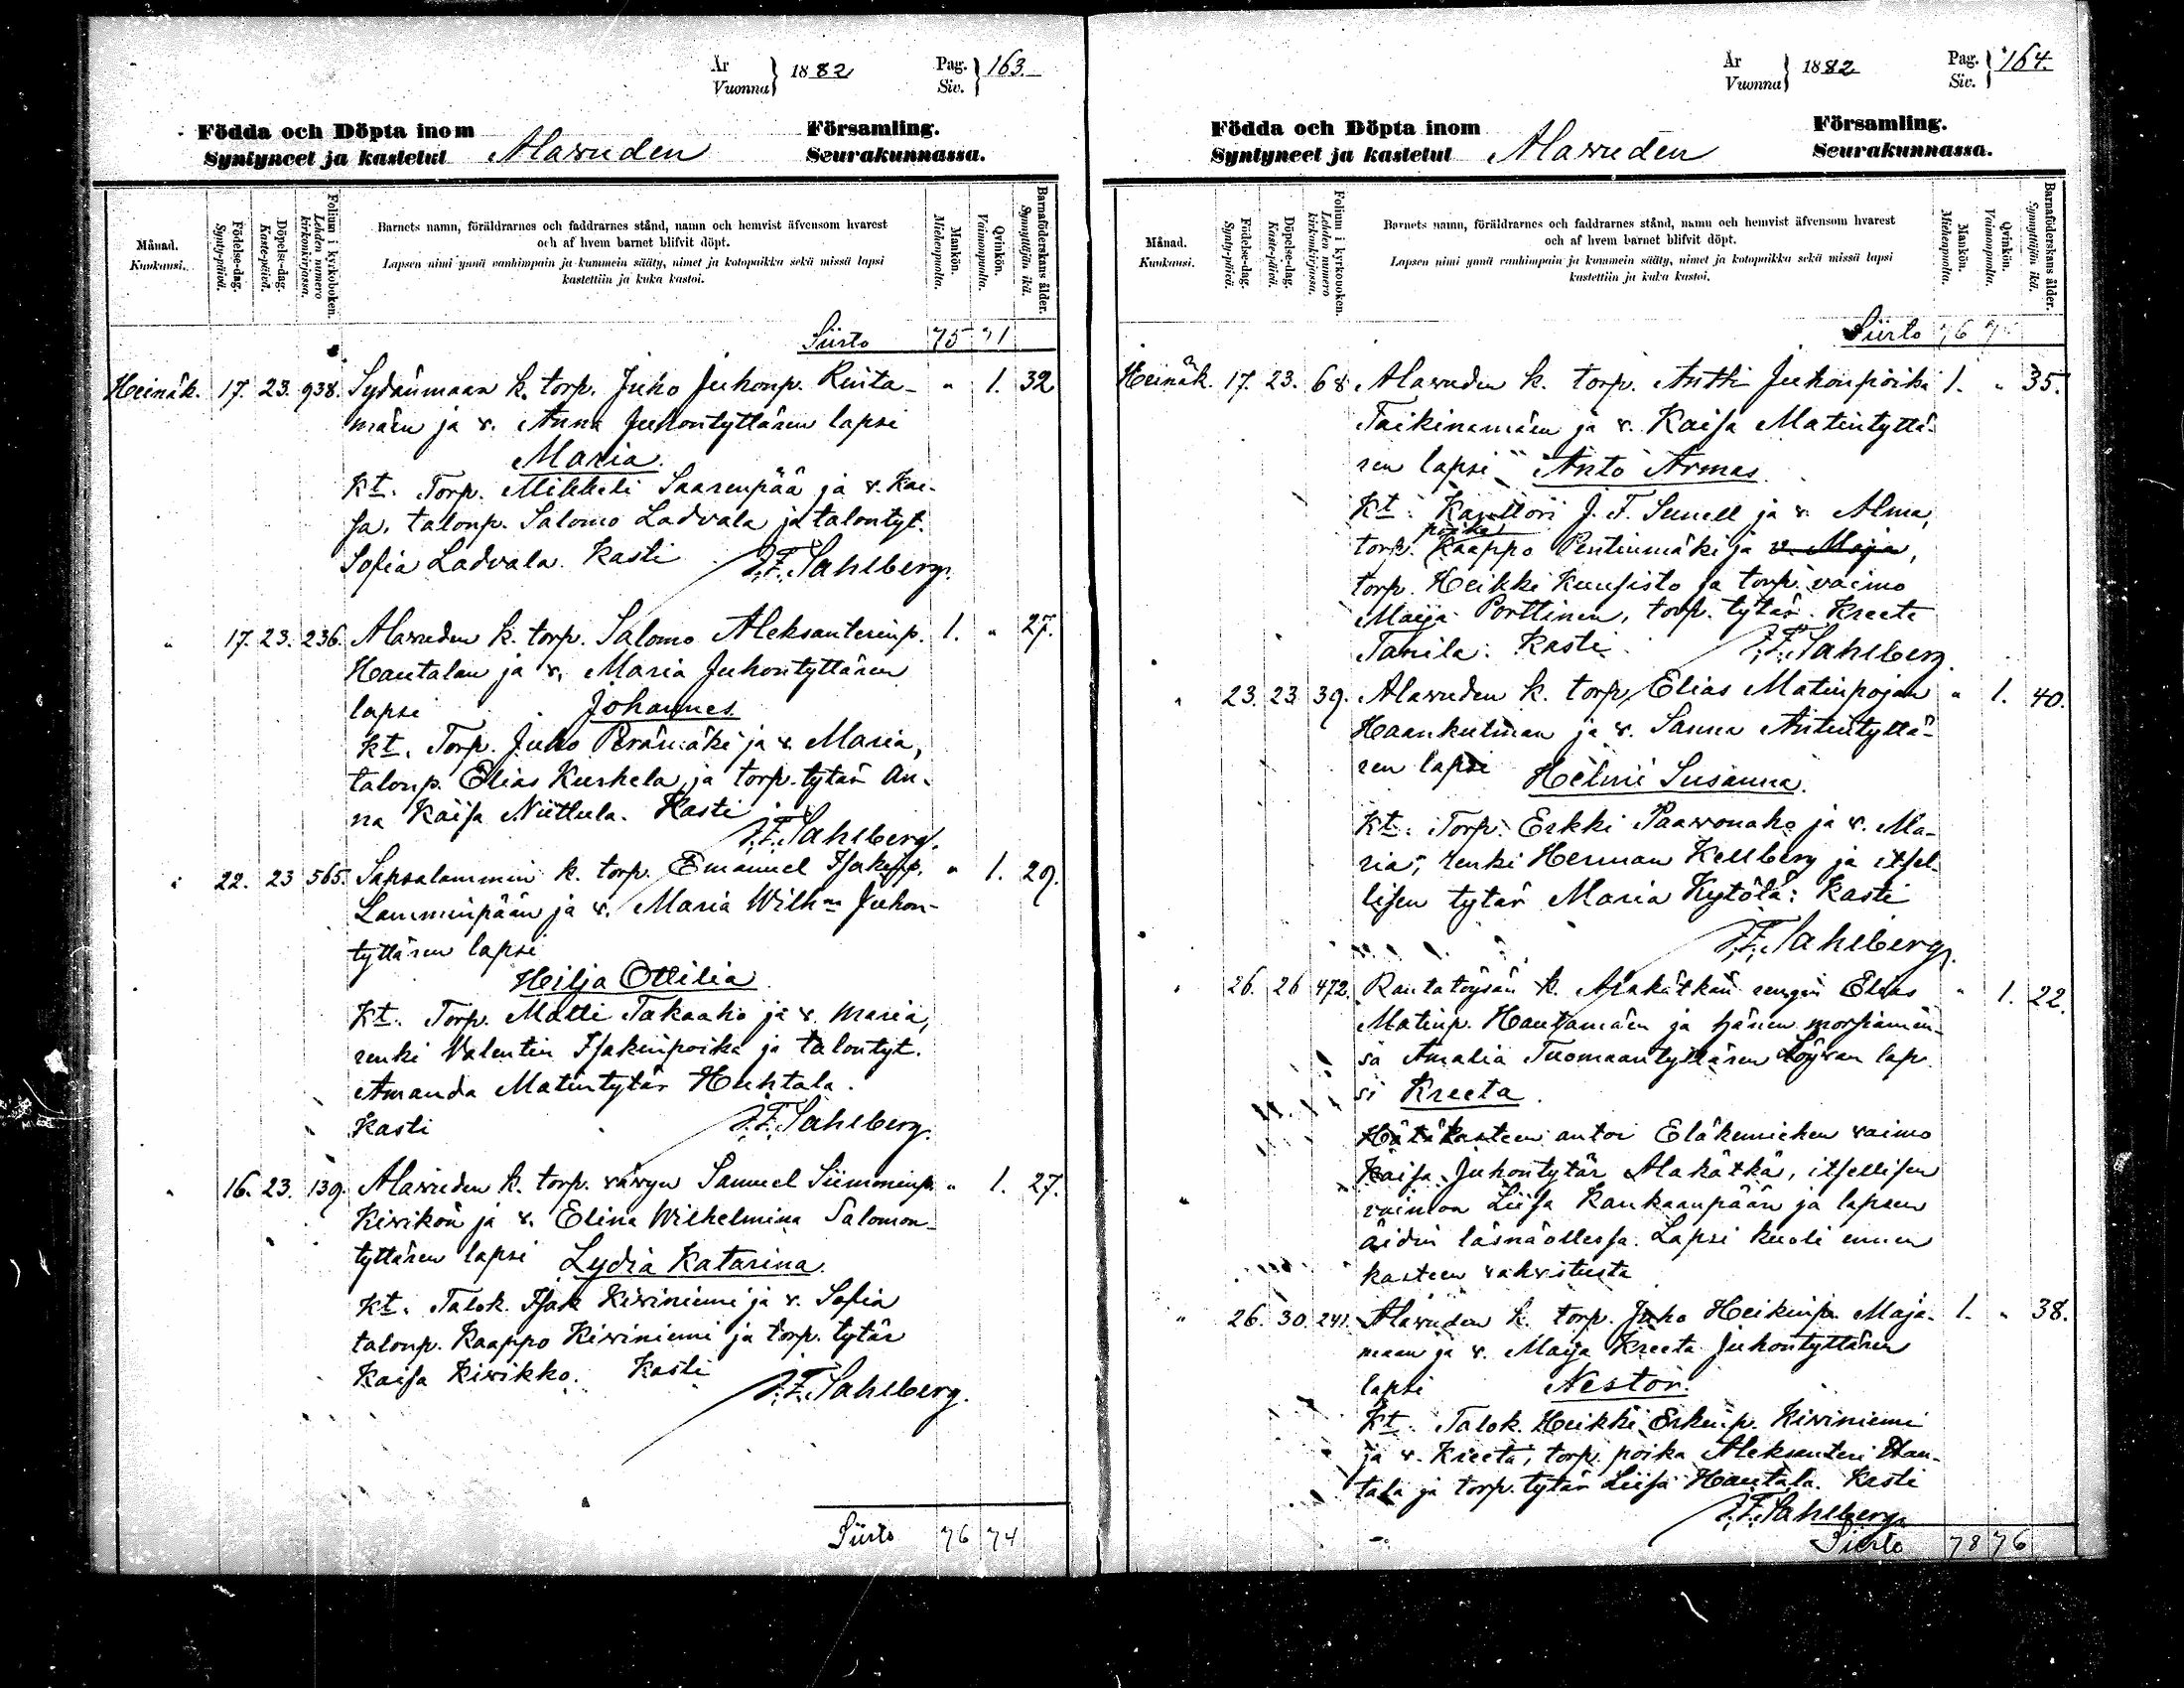 År
Vuonna } 1882 Pag.
Siv. } 163.
Födda och Döpta inom Församling.
Syntyneet ja kastetut Alavuden Seurakunnassa.
Månad.
Kuukausi.
Födelse-dag.
Synty-päivä.
Döpelse-dag.
Kaste-päivä.
Folium i kyrkoboken.
Lehden numero
kirkonkirjassa.
Barnets namn, föräldrarnes och faddrarnes stånd, namn och hemvist äfvensom hvarest
och af hvem barnet blifvit döpt.
Lapsen nimi ynnä vanhimpain ja kummein sääty, nimet ja kotopaikka sekä missä lapsi
kastettiin ja kuka kastoi.
Mankön.
Miehenpuolta.
Qvinkön.
Vaimonpuolta.
Barnaföderskans ålder.
Synnyttäjän ikä.
Siirto 75 71
Heinäk. 17. 23. 938. Sydänmaan k. torp. Juho Juhonp. Rinta- " 1. 32
mäen ja v. Anna Juhontyttären lapsi
Maria.
Kt. Torp. Mikkeli Saarenpää ja v. Kai-
sa, talonp. Salomo Ladvala ja talontyt.
Sofia Ladvala. Kasti J.F. Sahlberg.
" 17. 23. 236. Alavuden k. torp. Salomo Aleksanterinp. 1. " 27.
Hautalan ja v. Maria Juhontyttären
lapsi Johannes.
Kt. Torp. Juho Perämäki ja v. Maria,
talonp. Elias Kurkela ja torp. tytär An-
na Kaisa Niittula. Kasti
J.F. Sahlberg.
" 22. 23 565. Sapsalammin k. torp. Emanuel Isakinp. " 1. 29.
Lamminpään ja v. Maria Wilh:na Juhon-
tyttären lapsi
Hilja Ottilia
Kt. Torp. Matti Takaaho ja v. Maria,
renki Valentin Isakinpoika ja talontyt.
Amanda Matintytär Huhtala.
Kasti J.F. Sahlberg.
" 16. 23. 139. Alavuden k. torp. vävyn Samuel Siimoninp. " 1. 27.
Kivikön ja v. Elina Wilhelmina Salomon-
tyttären lapsi Lydia Katarina.
Kt. Talok. Isak Kiviniemi ja v. Sofia
talonp. Kaappo Kiviniemi ja torp. tytär
Kaisa Kivikko. Kasti
J.F. Sahlberg.
Siirto 76 74
År
Vuonna } 1882 Pag.
Siv. } 164.
Födda och Döpta inom Församling.
Syntyneet ja kastetut Alavuden Seurakunnassa.
Månad.
Kuukausi.
Födelse-dag.
Synty-päivä.
Döpelse-dag.
Kaste-päivä.
Folium i kyrkoboken.
Lehden numero
kirkonkirjassa.
Barnets namn, föräldrarnes och faddrarnes stånd, namn och hemvist äfvensom hvarest
och af hvem barnet blifvit döpt.
Lapsen nimi ynnä vanhimpain ja kummein sääty, nimet ja kotopaikka sekä missä lapsi
kastettiin ja kuka kastoi.
Mankön.
Miehenpuolta.
Qvinkön.
Vaimonpuolta.
Barnaföderskans ålder.
Synnyttäjän ikä.
Siirto 76
Heinäk. 17. 23. 68 Alavuden k. torp. Antti Juhonpoika 1. " 35.
Taikinamäen ja v. Kaisa Matintyttä-
ren lapsi Anto Armas.
Kt. Kanttori J. F. Sunell ja v. Alma,
poika
torp. Kaappo Pentinmäki ja v. Maija,
torp. Heikki Kuusisto ja torp. vaimo
Maija Porttinen, torp. tytär Kreeta
Tanila. Kasti J.F. Sahlberg.
" 23. 23 39. Alavuden k. torp. Elias Matinpojan " 1. 40.
Haankulman ja v. Sanna Antintyttä-
ren lapsi Helmi Susanna.
Kt. Torp. Erkki Paavonaho ja v. Ma-
ria, renki Herman Kellberg ja itsel-
lisen tytär Maria Kytölä: Kasti
J.F. Sahlberg.
" 26. 26 472. Rantatöysän k. Alakätkän rengin Elias " 1. 22.
Matinp. Hautamäen ja hänen morsiamen-
sa Amalia Tuomaantyttären Löyvan lap-
si Kreeta.
Hätäkasteen antoi Eläkemiehen vaimo
Kaisa Juhontytär Alakätkä, itsellisen
vaimon Liisa Kankaanpään ja lapsen
äidin läsnäollessa. Lapsi kuoli ennen
kasteen vahvistusta
" 26. 30 241. Alavuden k. torp. Juho Heikinp. Maja- 1. " 38.
maan ja v. Maija Kreeta Juhontyttären
lapsi Nestor.
Kt. Talok. Heikki Erkinp. Kiviniemi
ja v. Kreeta, torp. poika Aleksanteri Hau-
tala ja torp. tytär Liisa Hautala. Kasti
J.F. Sahlberg.
Siirto 78 76